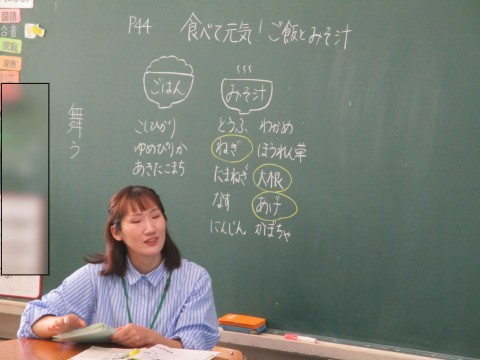 P44 食べて元気！ご飯とみそ汁
国語
ごはん
みそ汁
舞う
こしひかり
ゆめぴりか
あきたこまち
とうふ わかめ
ねぎ ほうれん草
たまねぎ 大根
なす あげ
にんじん かぼちゃ